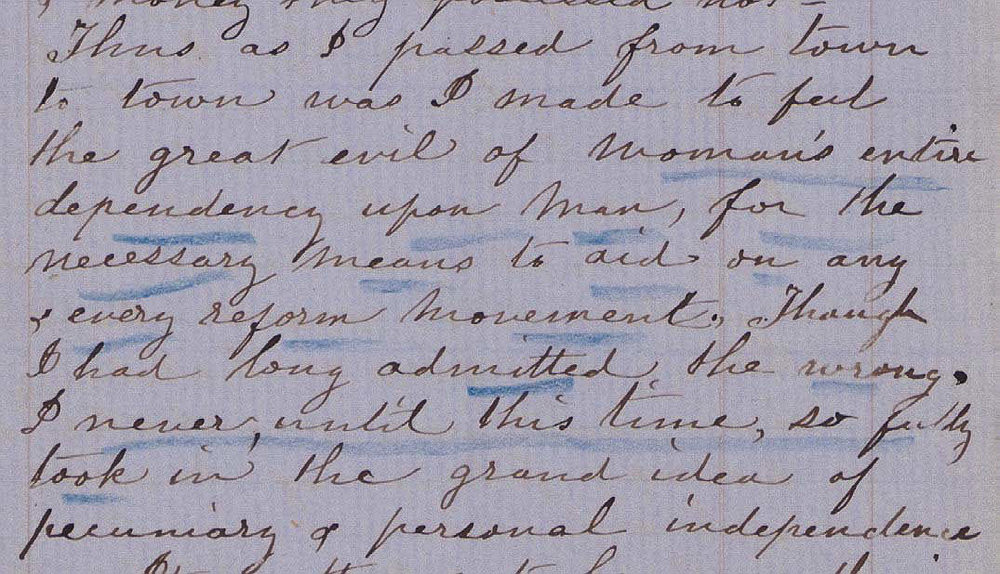 money they possessed not —
Thus as I passed from town
to town was I made to feel
the great evil of woman's entire
dependency upon man, for the
necessary means to aid on any
& every reform movement. Though
I had long admitted the wrong,
I never, until this time, so fully
took in the grand idea of
pecuniary & personal independence